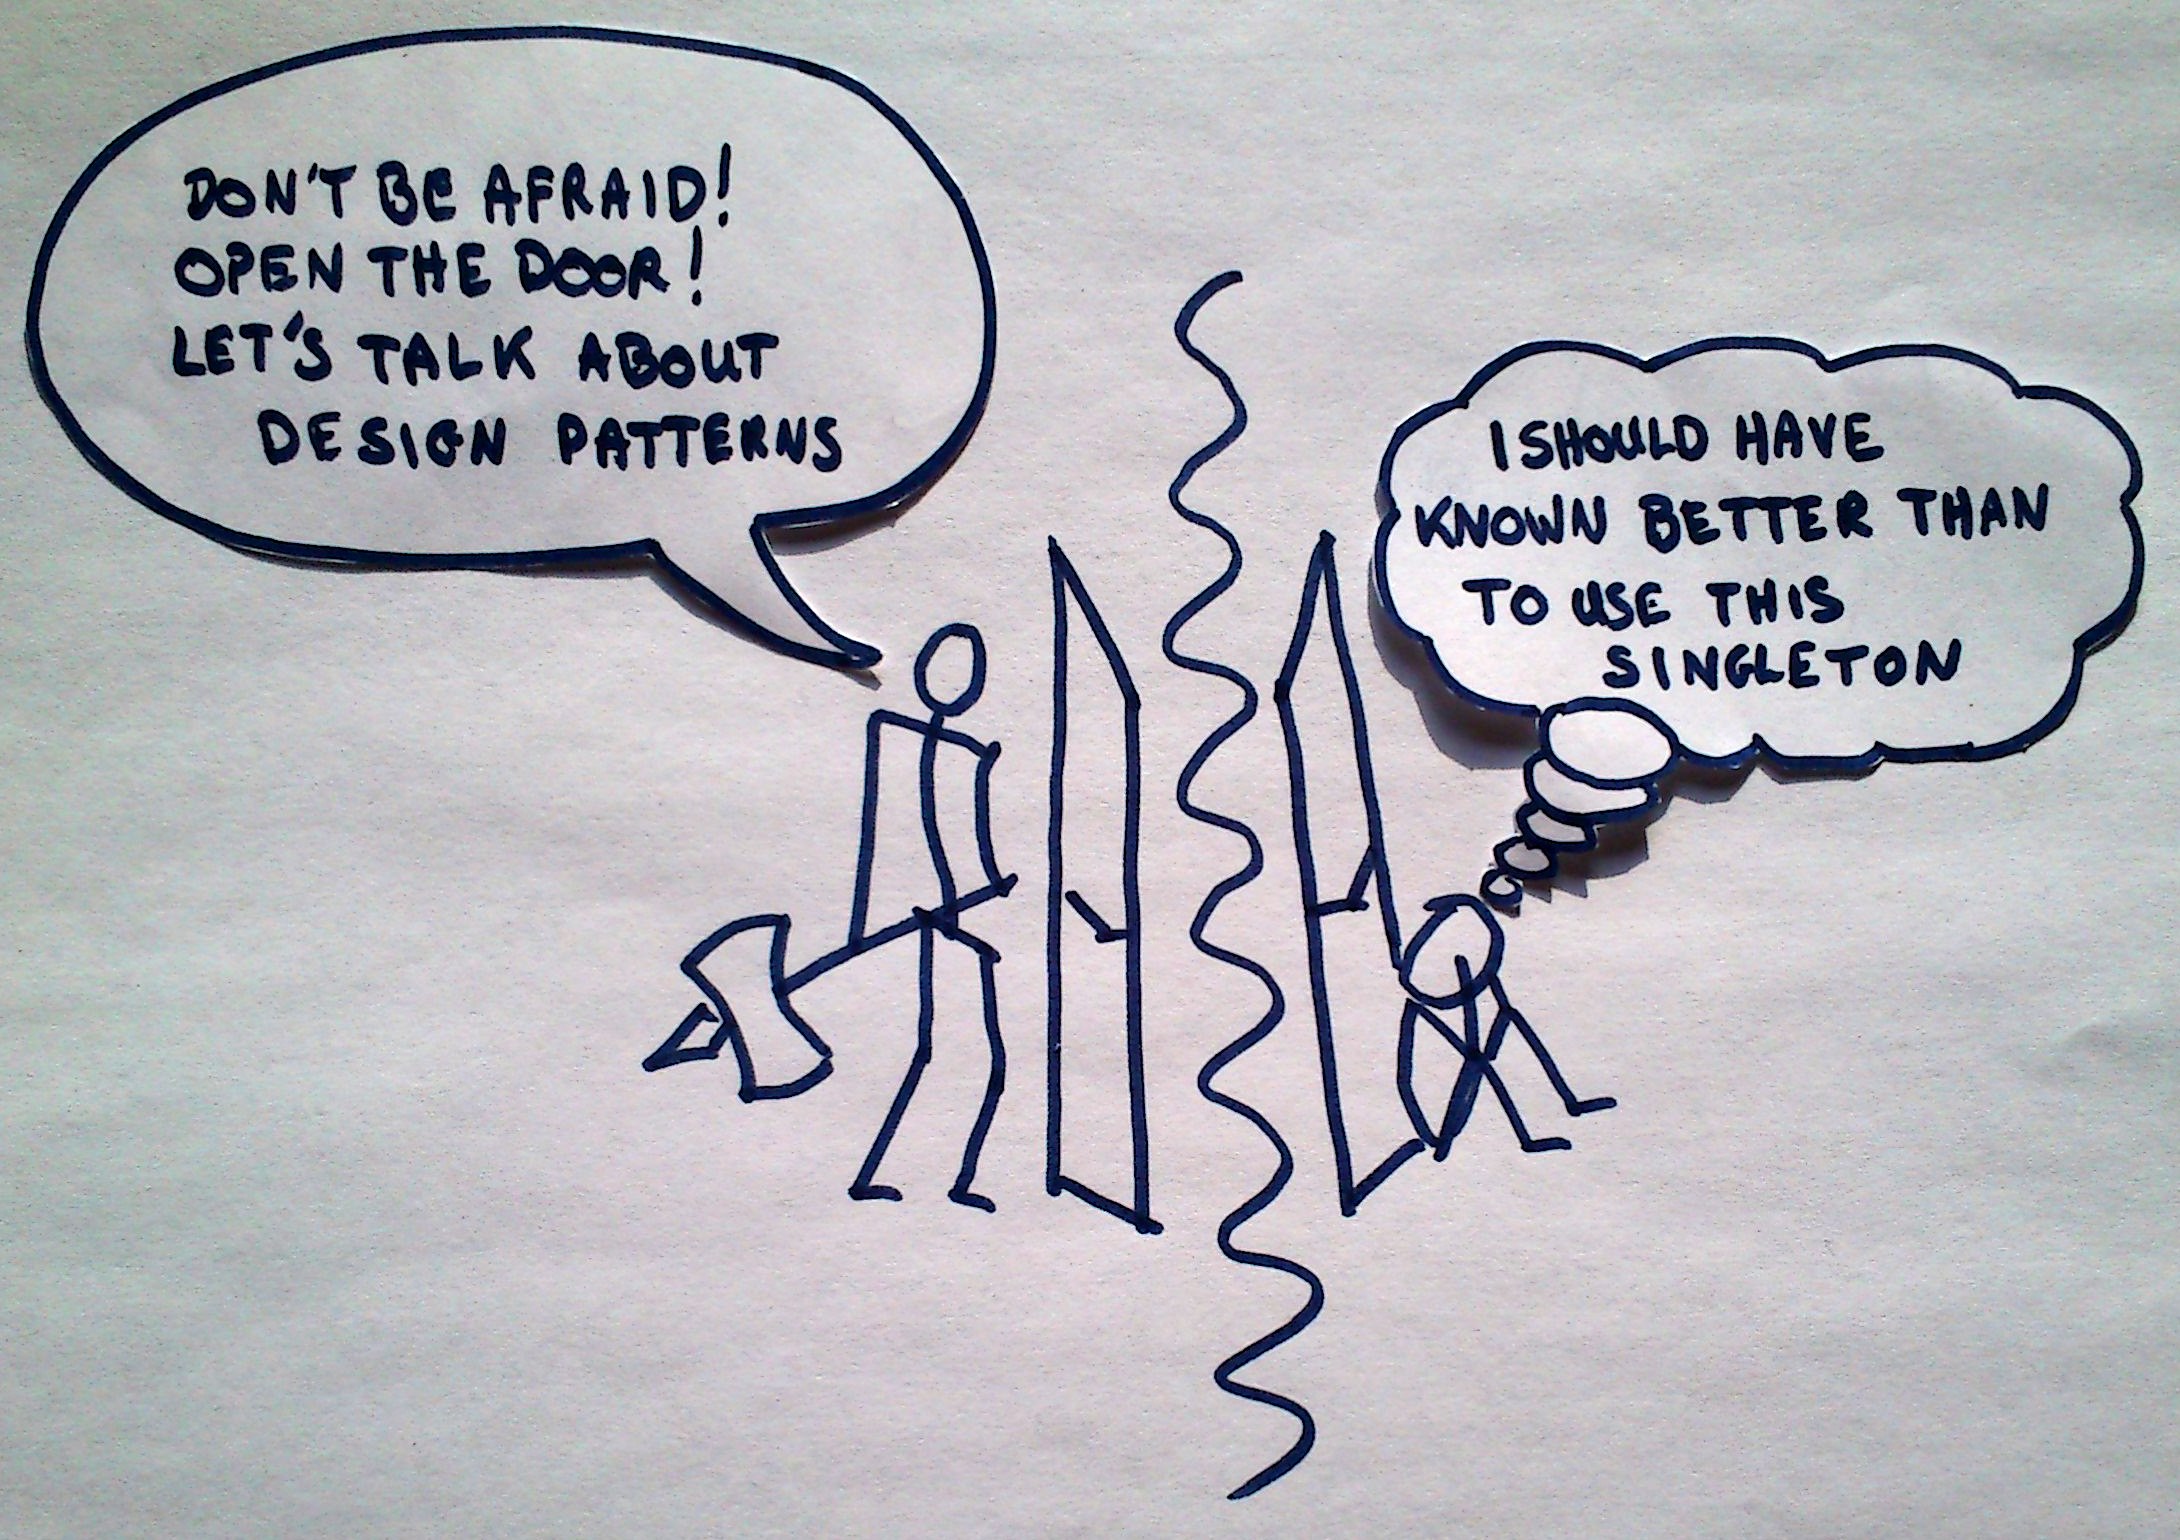 DON'T BE AFRAID!
OPEN THE DOOR!
LET'S TALK ABOUT
DESIGN PATTERNS
I SHOULD HAVE
KNOWN BETTER THAN
TO USE THIS
SINGLETON